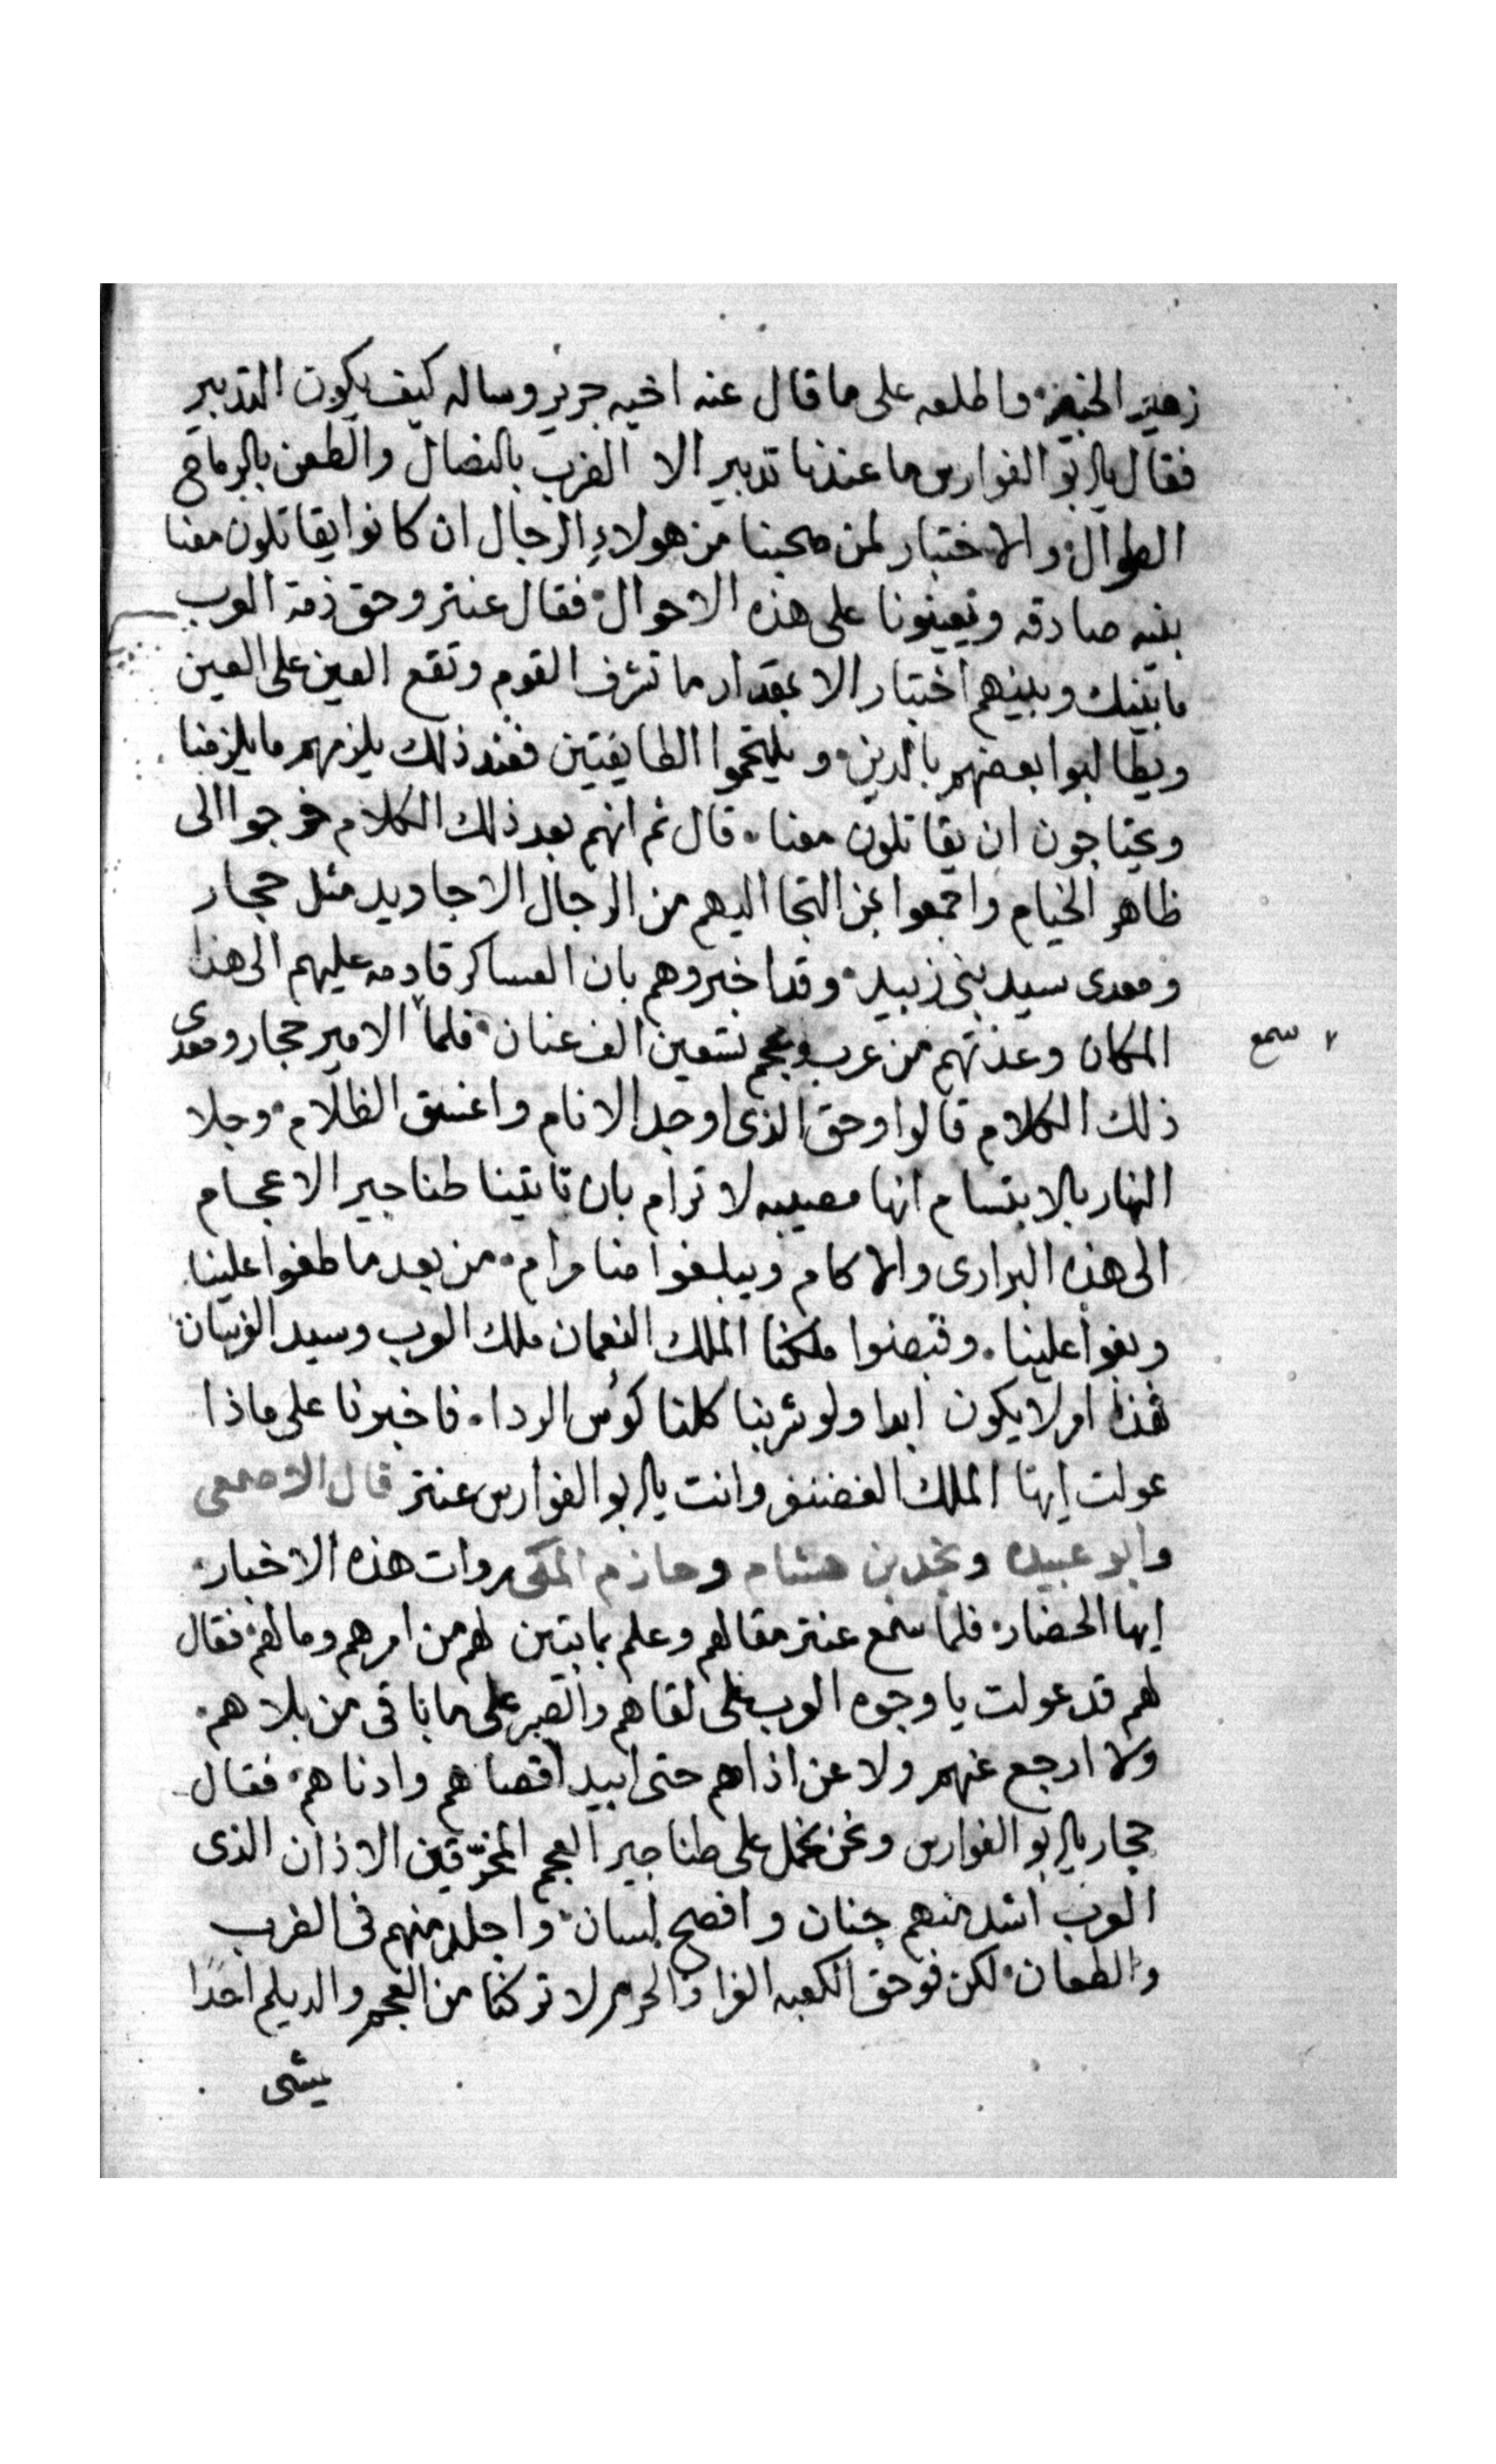 زهير الخبر، واطلعه على ما قال عنه اخيه جرير وساله كيف يكون التدبير
فقال يابو الفوارس ما عندنا تدبير الا الضرب بالنصال والطعن بالرماح
الطوال، والاختبار لمن صحبنا من هولاءِ الرجال ان كانوا يقاتلون معنا
بنيه صادقه ويعينونا على هذه الاحوال، فقال عنتر وحق ذمة العرب
ما بينك وبينهم اختبار الا بمقدار ما تشرف القوم وتقع العين على العين
ويطالبوا بعضهم بالدين، ويلتحموا الطايفتين فعند ذلك يلزمهم ما يلزمنا
ويحتاجون ان يقاتلون معنا، قال ثم انهم بعد ذلك الكلام خرجوا الى
ظاهر الخيام واجمعوا بمن التجا اليهم من الرجال الاجاويد مثل حجار
ومعدى سيد بنى زبيد، وقد اخبروهم بان العساكر قادمه عليهم الى هذا
المكان وعدتهم من عرب وعجم تسعين الف عنان، فلما الامير حجار ومعدى
سمع
ذلك الكلام قالوا وحق الذى اوجد الانام واغسق الظلام، وجلا
النهار بالابتسام انها مصيبه لا ترام بان تاتينا طناجير الاعجام
الى هذه البرارى والاكام ويبلغوا منا مرام، من بعد ما طغوا علينا
وبغوا علينا، وقبضوا ملكنا الملك النعمان ملك العرب وسيد الفرسان
فهذا امر لا يكون ابدا ولو شربنا كلنا كوُس الردا، فاخبرنا على ماذا
عولت ايها الملك الغضنفر وانت يابو الفوارس عنتر قال الاصمعى
وابو عبيده ونجد بن هشام وحازم المكى روات هذه الاخبار،
ايها الحضار، فلما سمع عنتر مقالهم وعلم بما يتبين لهم من امرهم ومالهم، فقال
لهم قد عولت يا وجوه العرب على لقاهم والصبر على ما نلاقى من بلاهم،
ولا ارجع عنهم ولا عن اذاهم حتى ابيد اقصاهم وادناهم، فقال
حجار يابو الفوارس ونحن نحمل على طناجير العجم المخرّقين الاذان الذى
العرب اشد منهم جنان وافصح لسان، واجلد منهم فى الضرب
والطعان، لكن فوحق الكعبه الغرا والحرم لا تركنا من العجم والديلم احدًا
يمشى